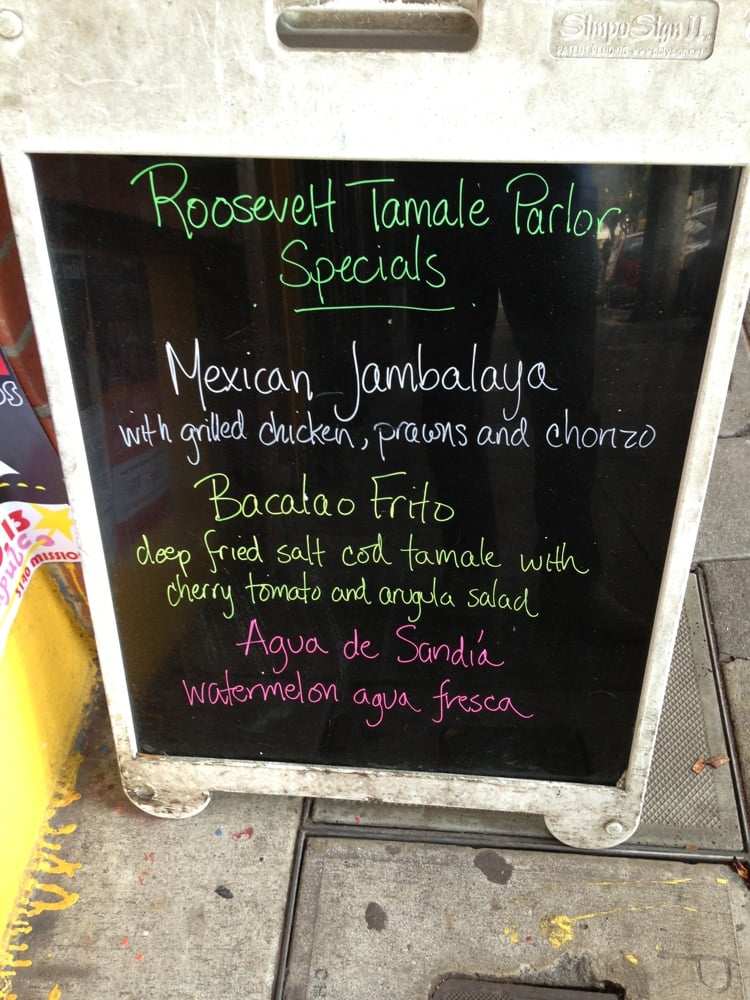 SimpoSign II
PATENT PENDING
Roosevelt Tamale Parlor
Specials
Mexican Jambalaya
with grilled chicken, prawns and chorizo
Bacalao Frito
deep fried salt cod tamale with
cherry tomato and arugula salad
Agua de Sandía
watermelon agua fresca
.13
5140 MISSIO